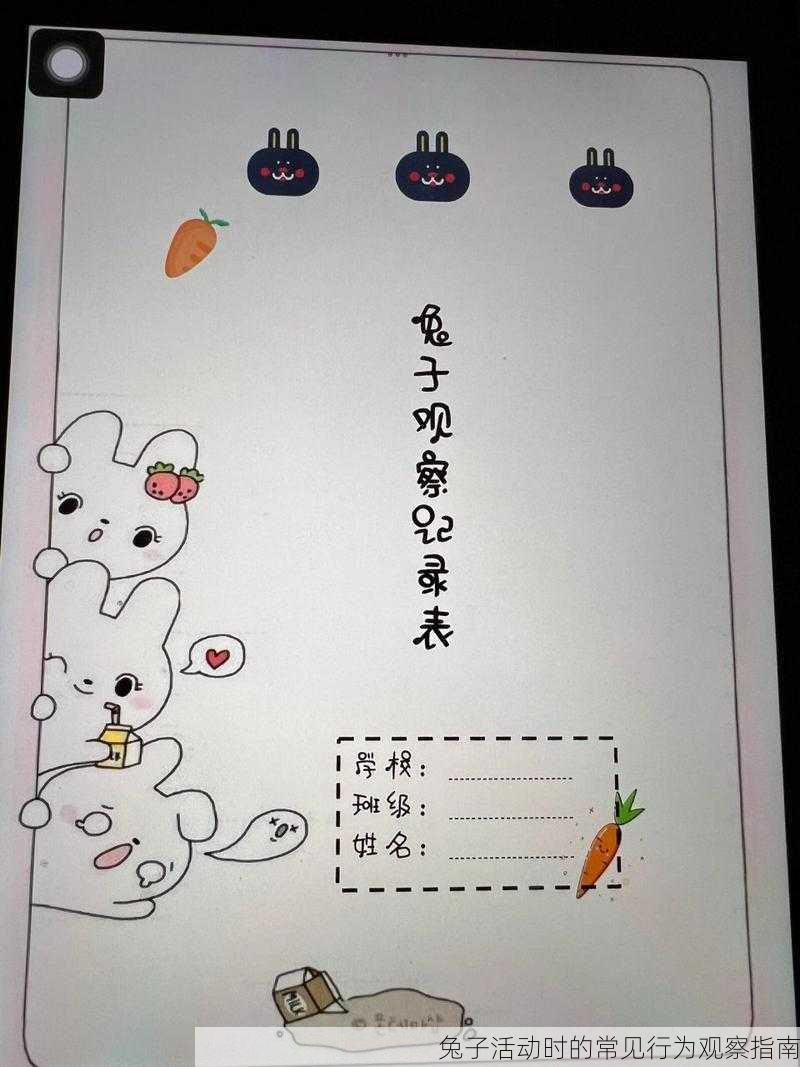 兔子观察记录表
学校：
班级：
姓名：
MILK
兔子活动时的常见行为观察指南